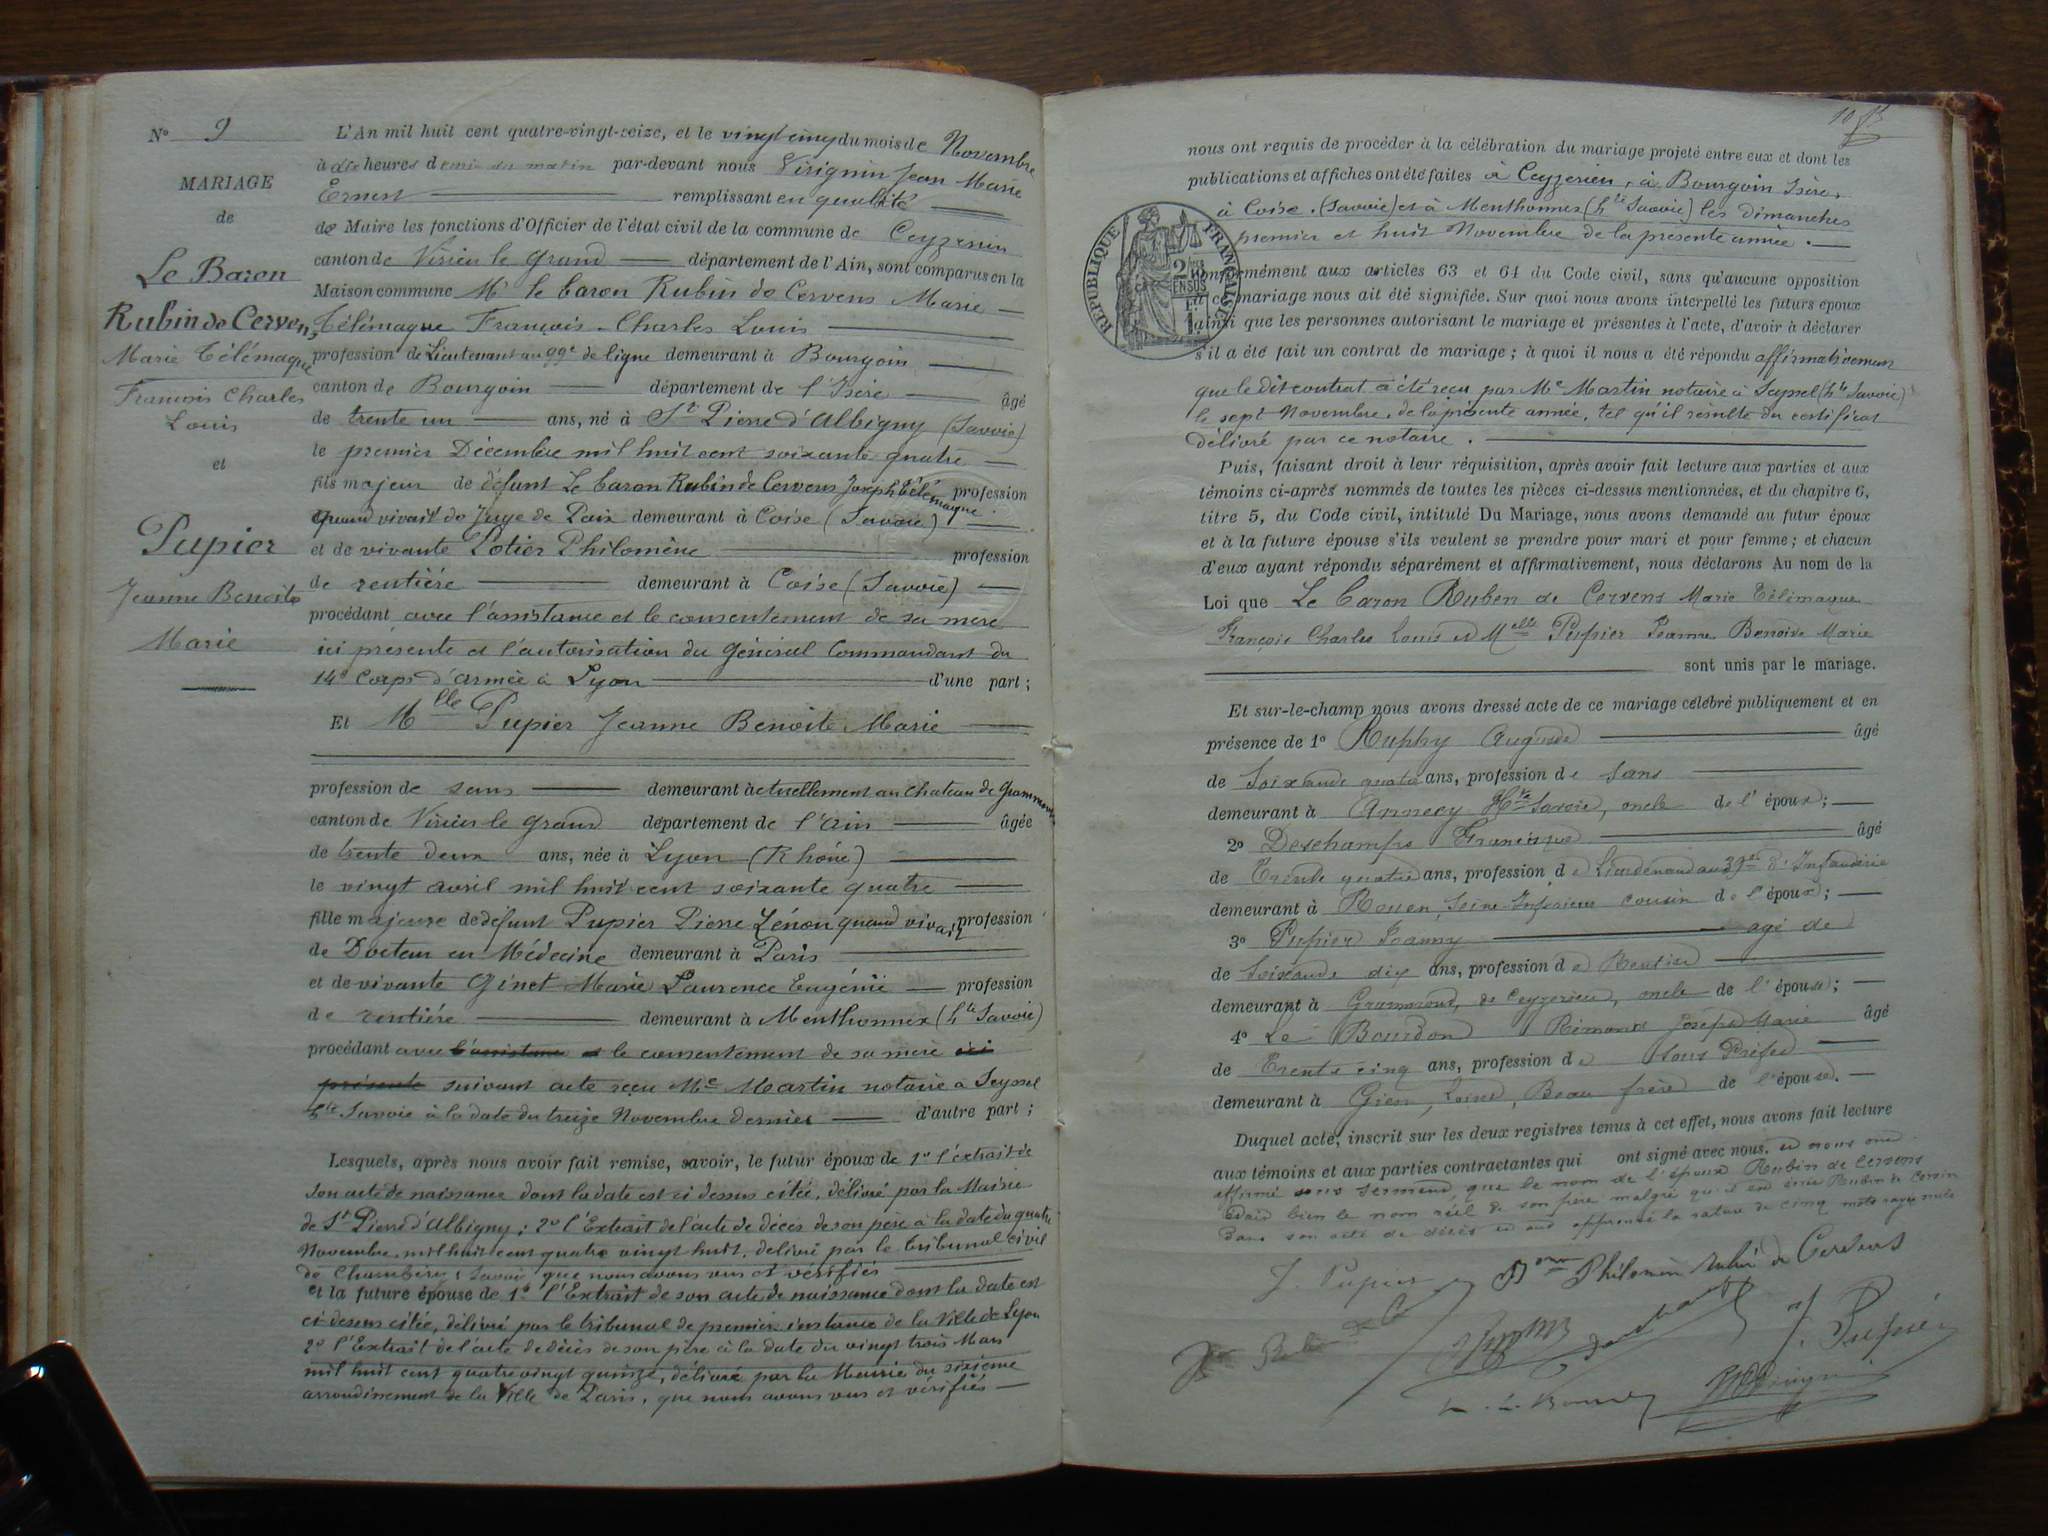 N° 9
MARIAGE
de
Le Baron
Rubin de Cervens
Marie Télémaque
François Charles
Louis
et
Pupier
Jeanne Benoite
Marie
L'An mil huit cent quatre-vingt-seize, et le vingt cinq du mois de Novembre
à dix heures demie du matin par-devant nous Virignin Jean Marie
Ernest remplissant en qualité
de Maire les fonctions d'Officier de l'état civil de la commune de Ceyzerieu
canton de Virieu le Grand département de l'Ain, sont comparus en la
Maison commune Mr le baron Rubin de Cervens Marie
Télémaque François Charles Louis
profession de Lieutenant au 99e de ligne demeurant à Bourgoin
canton de Bourgoin département de l'Isère âgé
de trente un ans, né à St Pierre d'Albigny (Savoie)
le premier Décembre mil huit cent soixante quatre
fils majeur de défunt Le baron Rubin de Cervens Joseph Télémaque profession
quand vivait de Juge de Paix demeurant à Coise (Savoie)
et de vivante Potier Philomène profession
de rentière demeurant à Coise (Savoie)
procédant avec l'assistance et le consentement de sa mère
ici présente et l'autorisation du Général Commandant du
14e Corps d'armée à Lyon d'une part;
Et Mlle Pupier Jeanne Benoite Marie
profession de sans demeurant actuellement au chateau de Grammont
canton de Virieu le Grand département de l'Ain âgée
de trente deux ans, née à Lyon (Rhône)
le vingt avril mil huit cent soixante quatre
fille majeure de défunt Pupier Pierre Zénon quand vivait profession
de Docteur en Médecine demeurant à Paris
et de vivante Ginet Marie Laurence Eugénie profession
de rentière demeurant à Menthonnex (hte Savoie)
procédant avec l'assistance et le consentement de sa mère ici
présente suivant acte reçu Me Martin notaire à Seyssel
hte Savoie à la date du treize Novembre dernier d'autre part;
Lesquels, après nous avoir fait remise, savoir, le futur époux de 1° l'extrait de
son acte de naissance dont la date est ci dessus citée, délivré par la Mairie
de St Pierre d'Albigny; 2° l'Extrait de l'acte de décès de son père à la date du quatre
Novembre mil huit cent quatre vingt huit, délivré par le tribunal civil
de Chambéry, Savoie que nous avons vus et vérifiés
et la future épouse de 1° l'Extrait de son acte de naissance dont la date est
ci dessus citée, délivré par le tribunal de première instance de la Ville de Lyon
2° l'Extrait de l'acte de décès de son père à la date du vingt trois Mars
mil huit cent quatre vingt quinze, délivré par la Mairie du sixième
arrondissement de la Ville de Paris, que nous avons vus et vérifiés
10
nous ont requis de procéder à la célébration du mariage projeté entre eux et dont les
publications et affiches ont été faites à Ceyzerieu, à Bourgoin Isère,
à Coise (Savoie) et à Menthonnex (hte Savoie) les dimanches
premier et huit Novembre de la présente année.
RÉPUBLIQUE FRANÇAISE
conformément aux articles 63 et 64 du Code civil, sans qu'aucune opposition
à ce mariage nous ait été signifiée. Sur quoi nous avons interpellé les futurs époux
ainsi que les personnes autorisant le mariage et présentes à l'acte, d'avoir à déclarer
s'il a été fait un contrat de mariage; à quoi il nous a été répondu affirmativement
que le dit contrat a été reçu par Me Martin notaire à Seyssel (hte Savoie)
le sept Novembre de la présente année, tel qu'il résulte du certificat
délivré par ce notaire.
Puis, faisant droit à leur réquisition, après avoir fait lecture aux parties et aux
témoins ci-après nommés de toutes les pièces ci-dessus mentionnées, et du chapitre 6,
titre 5, du Code civil, intitulé Du Mariage, nous avons demandé au futur époux
et à la future épouse s'ils veulent se prendre pour mari et pour femme; et chacun
d'eux ayant répondu séparément et affirmativement, nous déclarons Au nom de la
Loi que Le baron Ruben de Cervens Marie Télémaque
François Charles Louis et Melle Pupier Jeanne Benoite Marie
sont unis par le mariage.
Et sur-le-champ nous avons dressé acte de ce mariage célébré publiquement et en
présence de 1° Ruphy Auguste âgé
de Soixante quatre ans, profession de sans
demeurant à Annecy Hte Savoie, oncle de l'époux;
2° Deschamps Francisque âgé
de Trente quatre ans, profession de Lieutenant au d'Infanterie
demeurant à Rouen, Seine Inférieure cousin de l'époux;
3° Pupier Joanny agé de
de Soixante dix ans, profession de Rentier
demeurant à Grammond, de Ceyzerieu, oncle de l'épouse;
4° Le Bourdon Joseph Marie âgé
de Trente cinq ans, profession de Sous Préfet
demeurant à Gien, Loiret, Beau frère de l'épouse.
Duquel acte, inscrit sur les deux registres tenus à cet effet, nous avons fait lecture
aux témoins et aux parties contractantes qui ont signé avec nous. et nous ont
affirmé sous serment, que le nom de l'époux Rubin de Cervens
était bien le nom réel de son père malgré qu'il est écrit Rubin de Cervin
dans son acte de décès et ont approuvé la rature de cinq mots rayés nuls
J. Pupier
Philomène Rubin de Cervens
J. Pupier